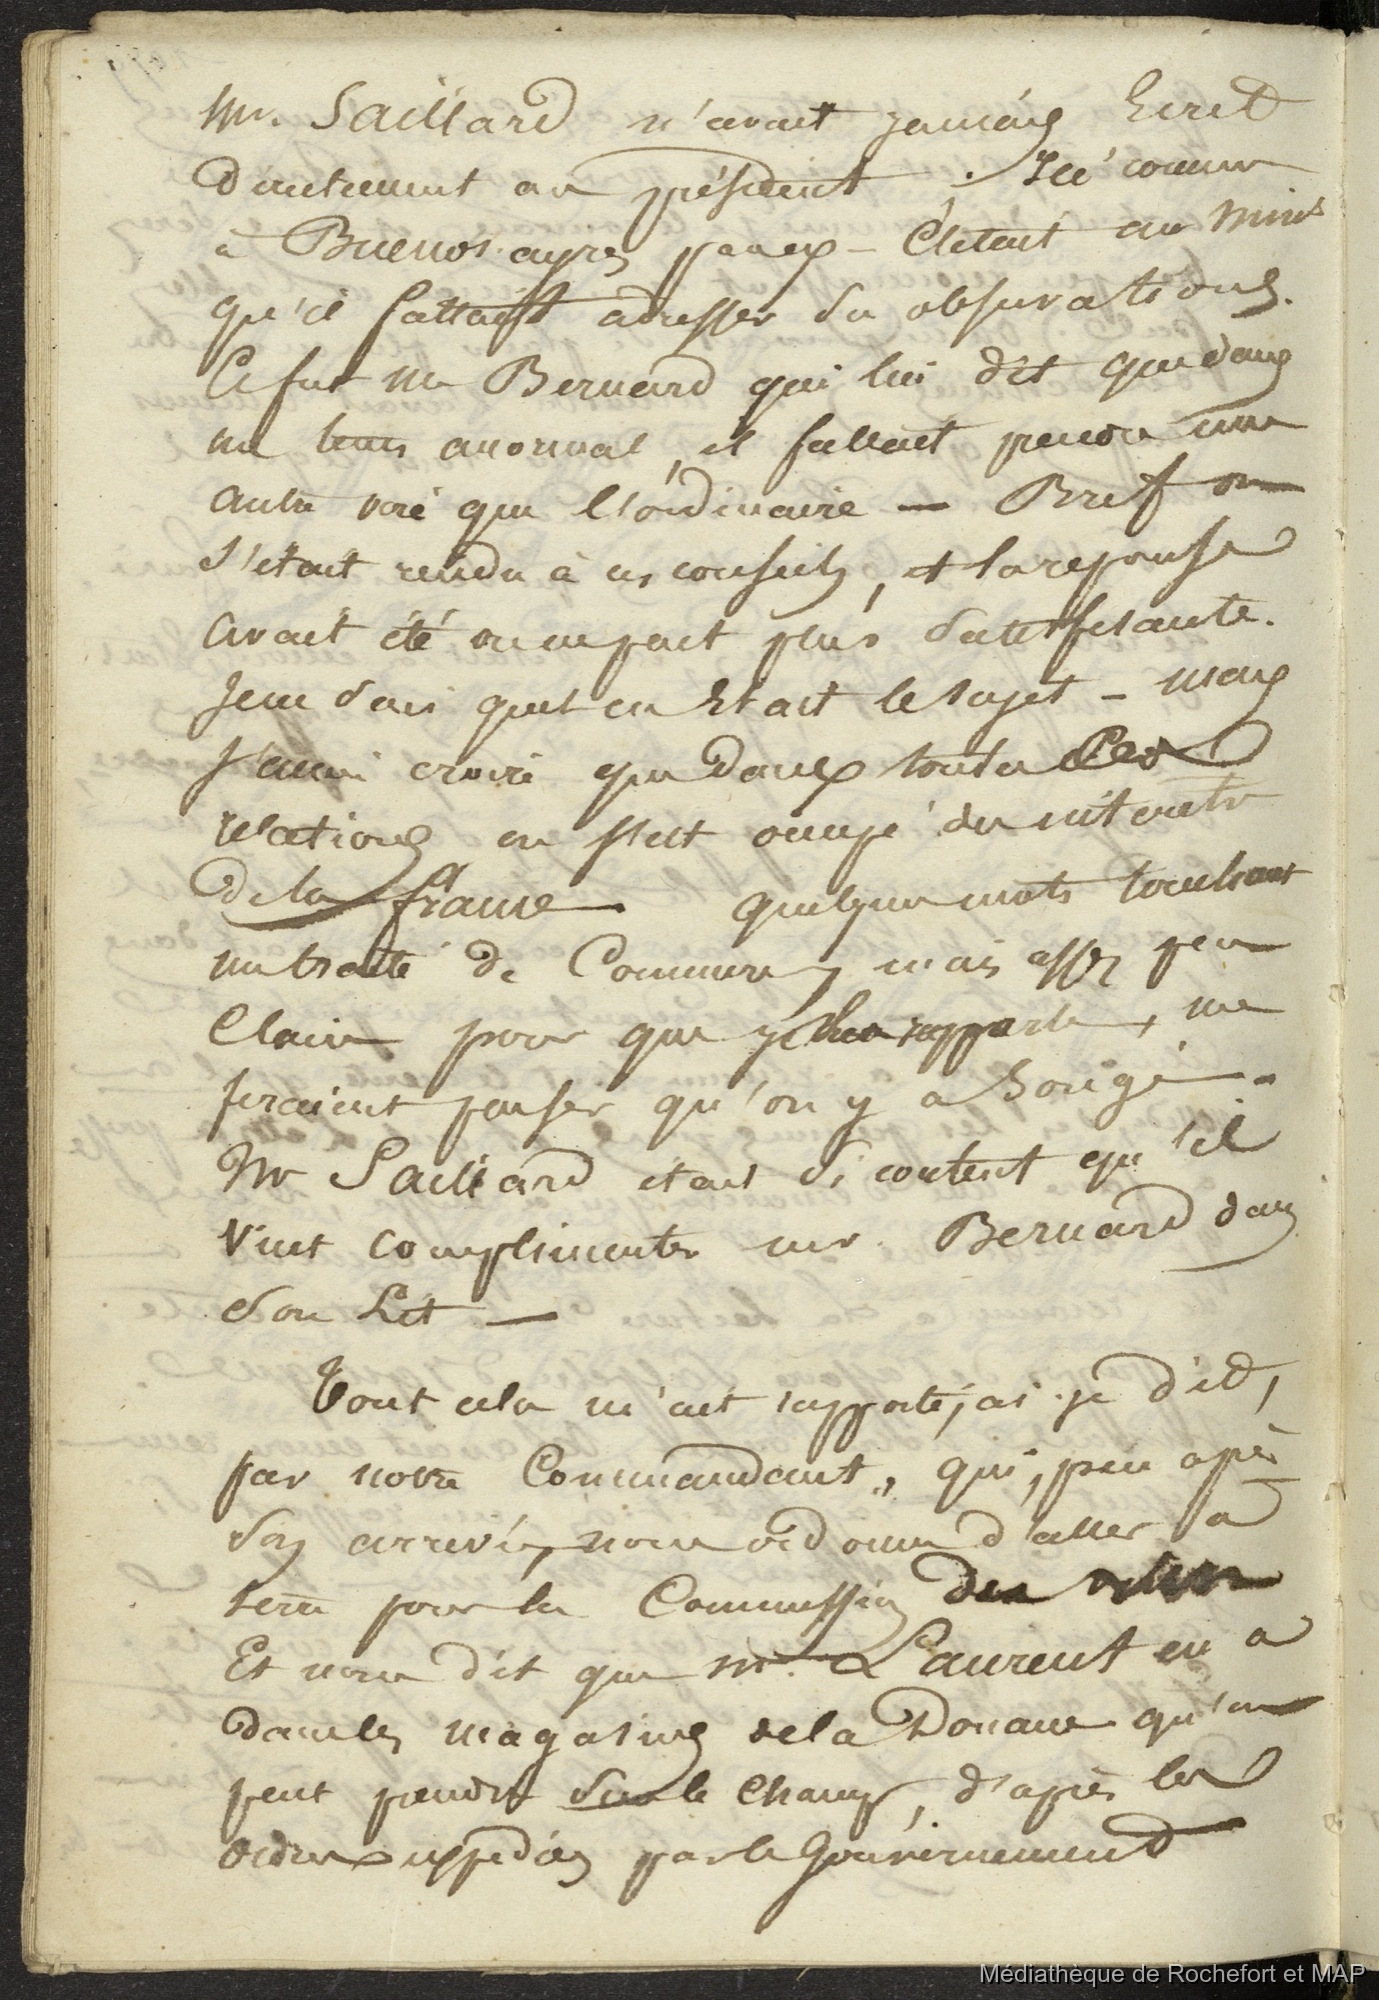 mr. Saillard n'avait jamais Ecrit
directement au président. Ici comme
à Buenos ayres parex- C'etait au minis
qu'il fallait adresser ses observations.
Ce fut mr Bernard qui lui dit que dans
un tems anormal, il fallait prendre une
autre voie que l'ordinaire — Bref on
s'etait rendu à ces conseils, et la reponse
avait été on ne peut plus satisfesante.
Je ne sais quel en Etait le sujet - mais
j'aime croire que dans toutes ces
relations on s'est occupé des interets
de la france. quelques mots touchant
un traité de Commerce, mais assez peu
Clairs pour que je les rapporte, me
feraient penser qu'on y a songé.
Mr Saillard etait si content qu'il
vint complimenter mr. Bernard dans
son Lit —
Tout cela m'est rapporté, ai-je dit,
par notre Commandant, qui, peu après
son arrivée, nous ordonne d'aller à
terre pour la Commission des
Et nous dit que mr. Laurent en a
dans les magasins de la Douane qu'on
peut prendre sur le champ, d'après les
ordres expediés par le Gouvernement